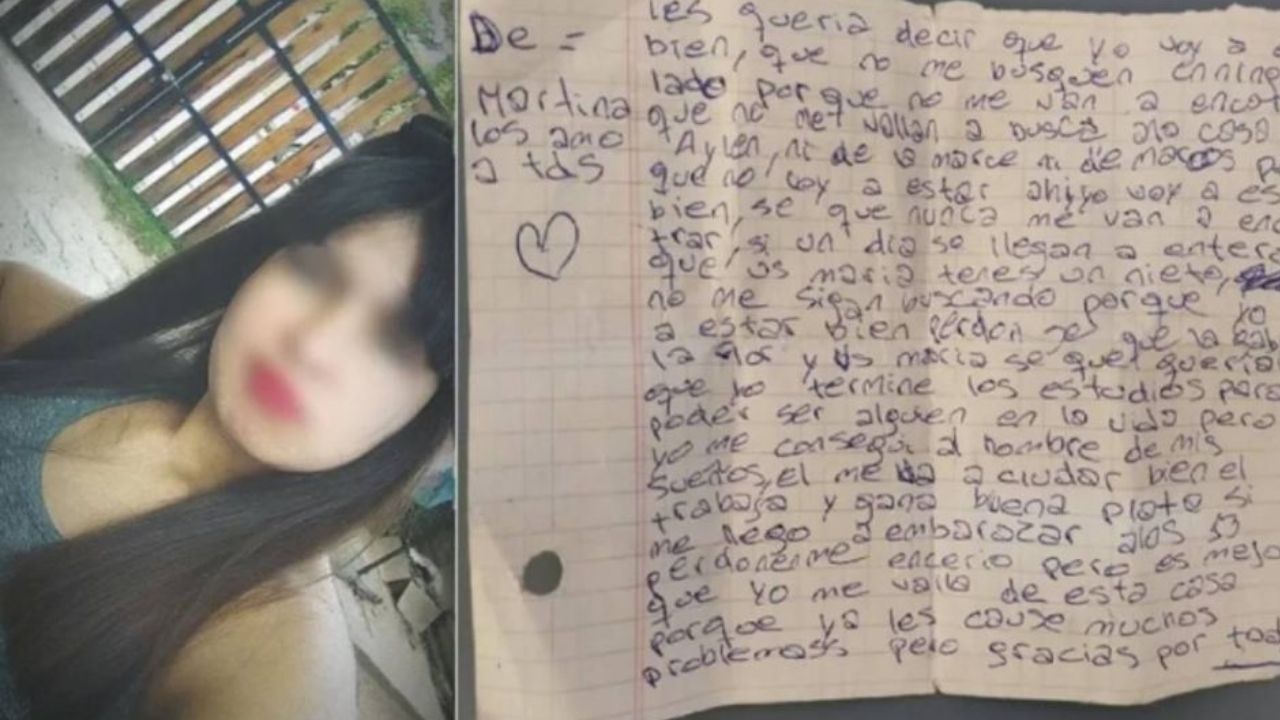 De =
Martina
los amo
a tds
les queria decir que yo voy a
bien, que no me busquen en ning
lado porque no me van a encot
que no me vallan a busca alo casa
Aylen, ni de la marce ni de marcos
que no voy a estar ahi yo voy a es
bien, se que nunca me van a enc
trar, si un dia se llegan a entera
que vs maria tenes un nieto,
no me sigan buscando porque yo
a estar bien perdon se que la
la flor y vs maria se que querian
que yo termine los estudios para
poder ser alguen en la vida pero
yo me consegui al hombre de mis
sueños, el me va a ciudar bien el
trabaja y gana buena plata si
me llego a embarazar alos 13
perdonenme encerio pero es mejo
que yo me valla de esta casa
porque ya les cause muchos
problemass pero gracias por tod